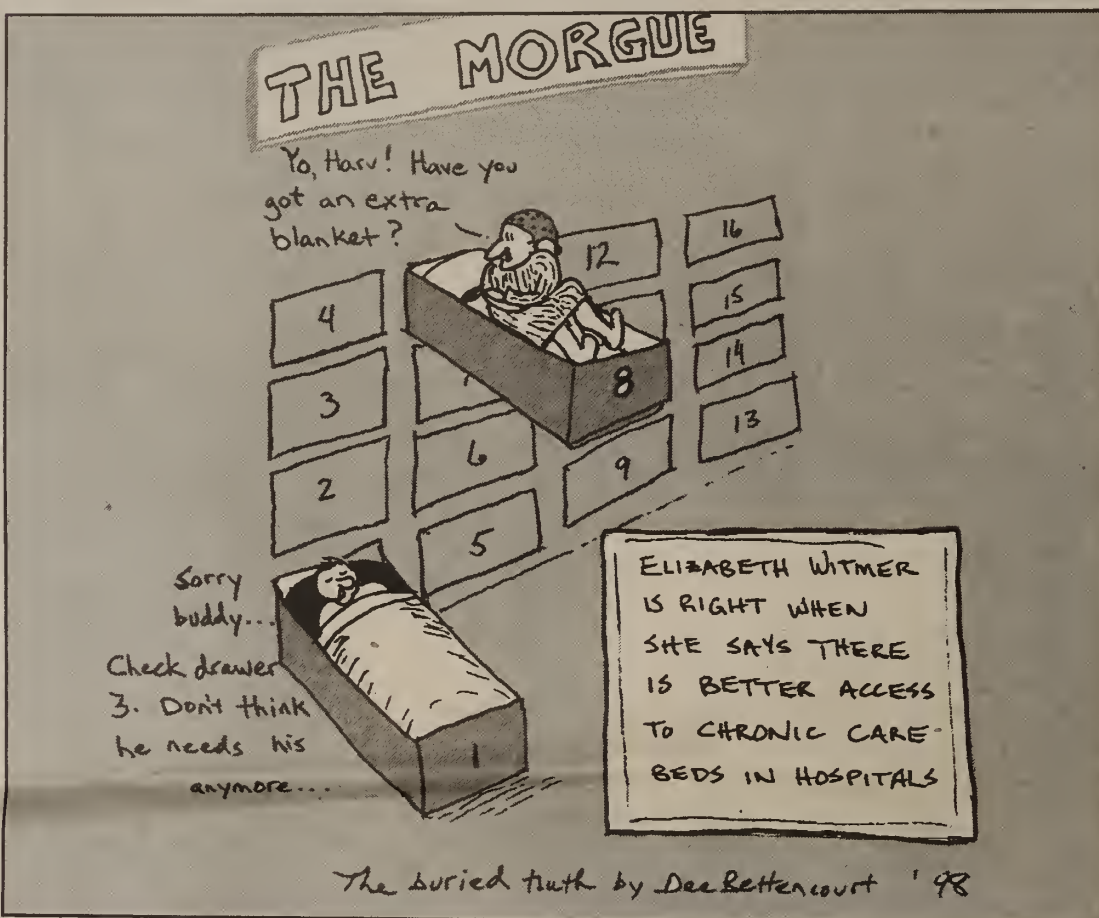 THE MORGUE
Yo, Harv! Have you
got an extra
blanket?
4
12
16
3
8
15
2
6
14
5
9
13
Sorry
buddy...
Check drawer
3. Don't think
he needs his
anymore...
1
ELIZABETH WITMER
IS RIGHT WHEN
SHE SAYS THERE
IS BETTER ACCESS
TO CHRONIC CARE
BEDS IN HOSPITALS
The buried truth by Dee Bettencourt '98